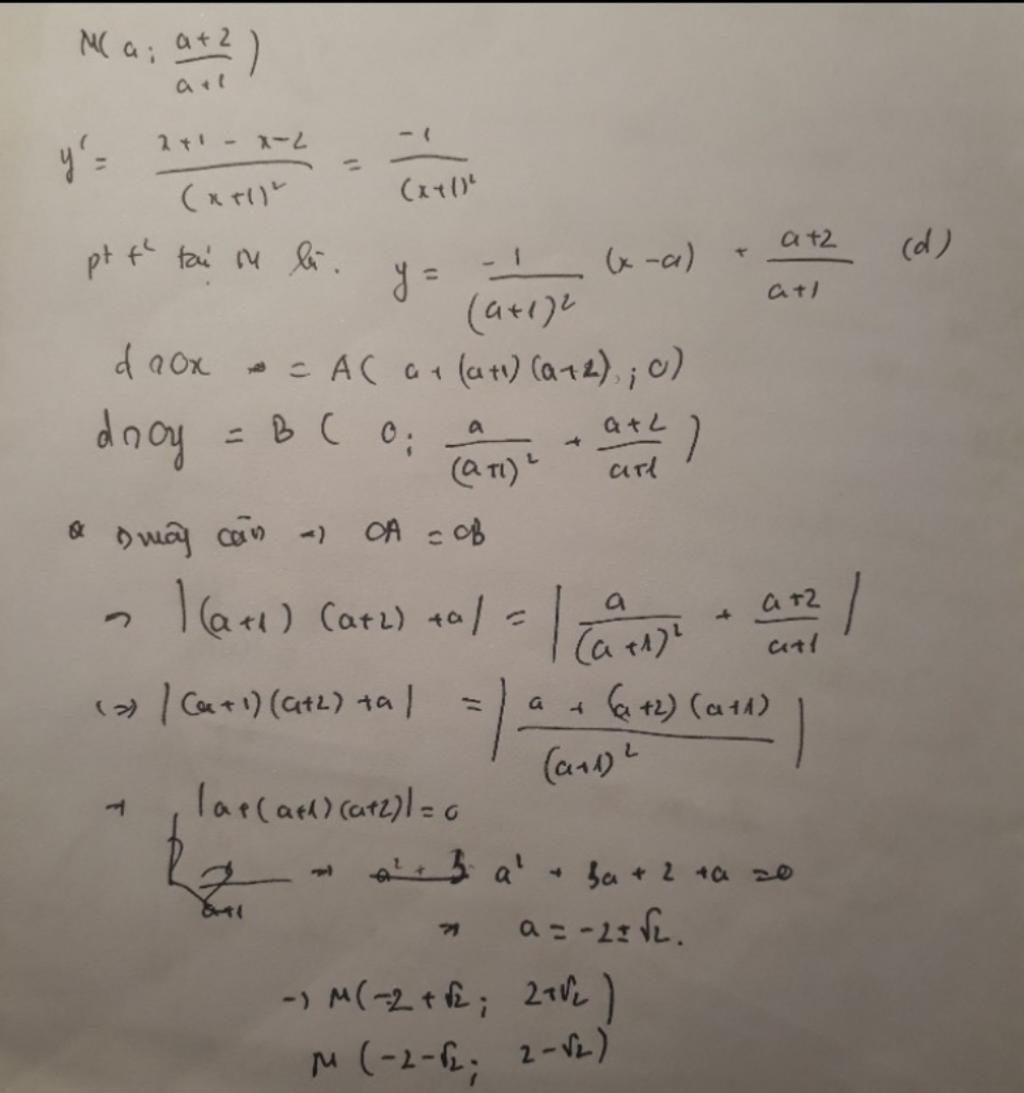 M( a ; \frac{a+2}{a+1} )
y' = \frac{x+1 - x-2}{(x+1)^2} = \frac{-1}{(x+1)^2}
pt t^2 tại M là. y = \frac{-1}{(a+1)^2} (x-a) + \frac{a+2}{a+1} (d)
d ∩ Ox = A( a + (a+1)(a+2) ; 0)
d ∩ Oy = B ( 0 ; \frac{a}{(a+1)^2} + \frac{a+2}{a+1} )
cân → OA = OB
→ |(a+1) (a+2) + a| = | \frac{a}{(a+1)^2} + \frac{a+2}{a+1} |
(=> |(a+1)(a+2) + a| = | \frac{a + (a+2)(a+1)}{(a+1)^2} |
→ |a + (a+1)(a+2)| = 0
→ a^2 + 3a + 2 + a = 0
→ a = -2 ± √2.
→ M(-2 + √2 ; 2+√2)
M (-2-√2 ; 2-√2)